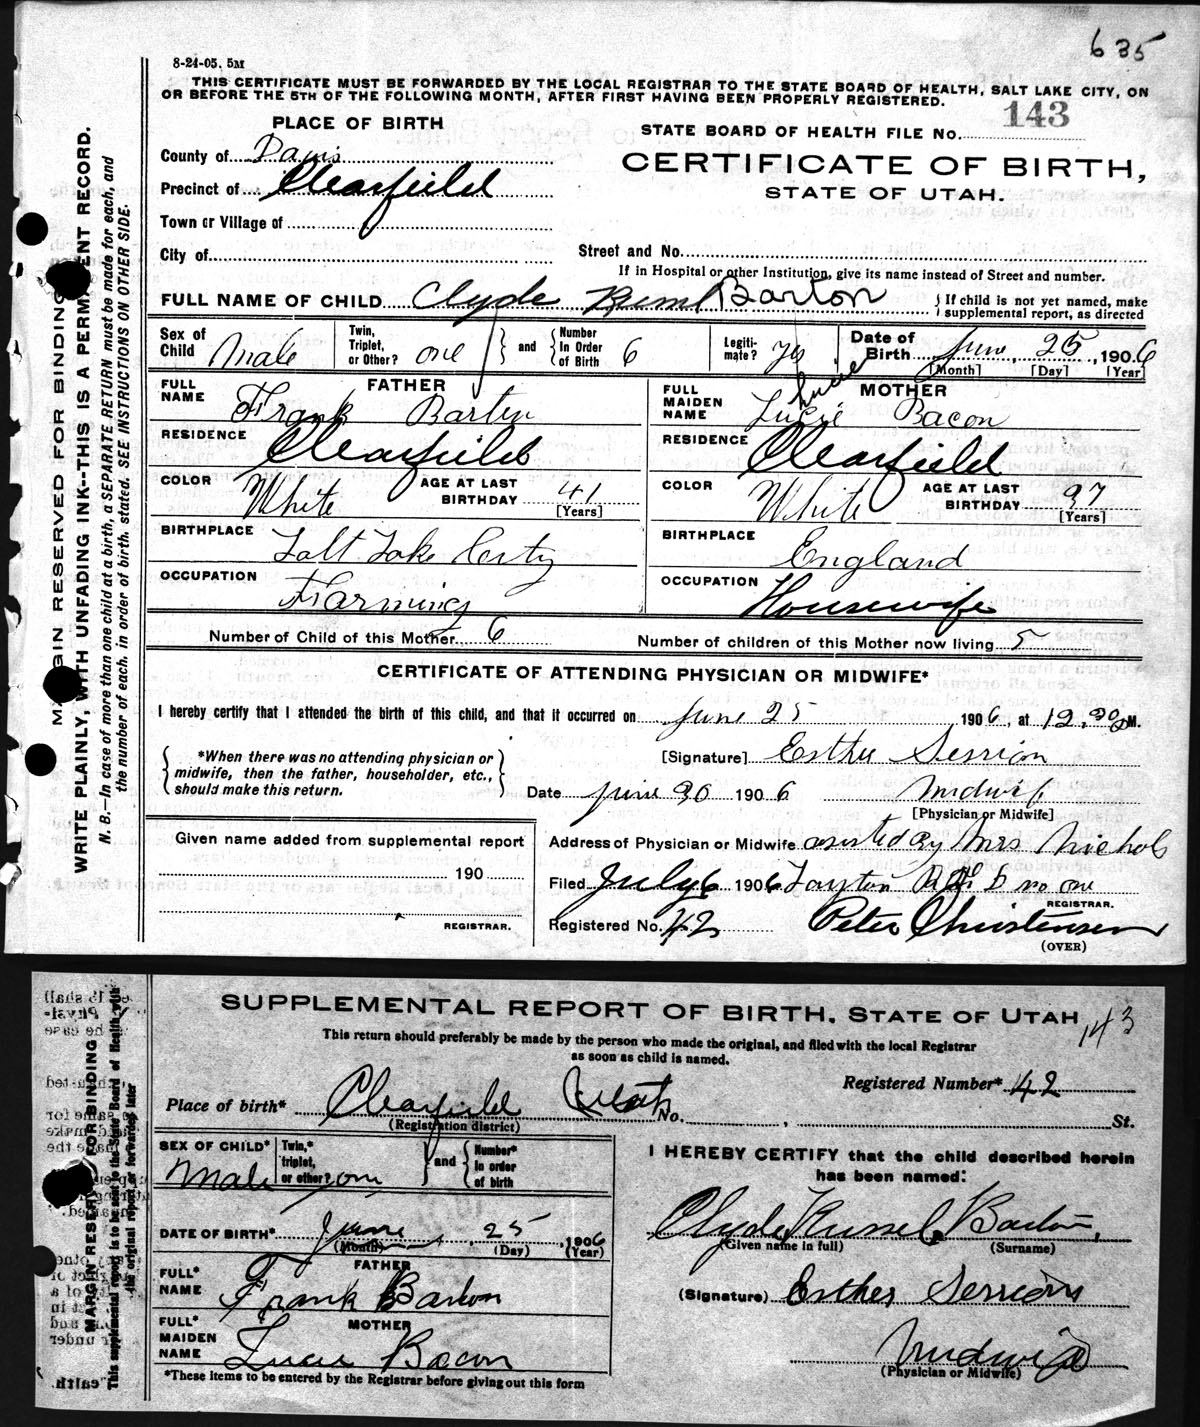 635
8-24-05. 5M
THIS CERTIFICATE MUST BE FORWARDED BY THE LOCAL REGISTRAR TO THE STATE BOARD OF HEALTH, SALT LAKE CITY, ON
OR BEFORE THE 5TH OF THE FOLLOWING MONTH, AFTER FIRST HAVING BEEN PROPERLY REGISTERED.
PLACE OF BIRTH
STATE BOARD OF HEALTH FILE No. 143
County of Davis
CERTIFICATE OF BIRTH,
Precinct of Clearfield
STATE OF UTAH.
Town or Village of
City of
Street and No.
If in Hospital or other Institution, give its name instead of Street and number.
FULL NAME OF CHILD Clyde Russel Barton { If child is not yet named, make supplemental report, as directed
Sex of Child Male Twin, Triplet, or Other? one } and { Number In Order of Birth 6 Legiti-mate? yes Date of Birth June 25, 1906
[Month] [Day] [Year]
FATHER
FULL NAME Frank Barton
MOTHER
FULL MAIDEN NAME Lucie Bacon
Lucie
RESIDENCE Clearfield
RESIDENCE Clearfield
COLOR White AGE AT LAST BIRTHDAY 41 [Years]
COLOR White AGE AT LAST BIRTHDAY 37 [Years]
BIRTHPLACE Salt Lake City
BIRTHPLACE England
OCCUPATION Farming
OCCUPATION Housewife
Number of Child of this Mother 6 Number of children of this Mother now living 5
CERTIFICATE OF ATTENDING PHYSICIAN OR MIDWIFE*
I hereby certify that I attended the birth of this child, and that it occurred on June 25 1906, at 12.30 M.
{ *When there was no attending physician or midwife, then the father, householder, etc., should make this return. }
[Signature] Esther Session
Date June 30 1906 Midwife
[Physician or Midwife]
Given name added from supplemental report
190
REGISTRAR.
Address of Physician or Midwife assisted by Mrs Nichols
Filed July 6 1906 Layton R F D no one
REGISTRAR.
Registered No. 42 Peter Christensen
(OVER)
MARGIN RESERVED FOR BINDING
WRITE PLAINLY, WITH UNFADING INK--THIS IS A PERMANENT RECORD.
N. B.--In case of more than one child at a birth, a SEPARATE RETURN must be made for each, and
the number of each, in order of birth, stated. SEE INSTRUCTIONS ON OTHER SIDE.
SUPPLEMENTAL REPORT OF BIRTH, STATE OF UTAH
143
This return should preferably be made by the person who made the original, and filed with the local Registrar
as soon as child is named.
Registered Number* 42
Place of birth* Clearfield Utah No. , St.
(Registration district)
SEX OF CHILD* Male Twin,* triplet, or other? one } and { Number* in order of birth
DATE OF BIRTH* June 25, 1906
(Month) (Day) (Year)
FATHER
FULL* NAME Frank Barton
MOTHER
FULL* MAIDEN NAME Lucie Bacon
*These items to be entered by the Registrar before giving out this form
I HEREBY CERTIFY that the child described herein
has been named:
Clyde Russel Barton,
(Given name in full) (Surname)
(Signature) Esther Sessions
Midwife
(Physician or Midwife)
MARGIN RESERVED FOR BINDING
This supplemental report is to be sent to the State Board of Health with
the original report or forwarded later